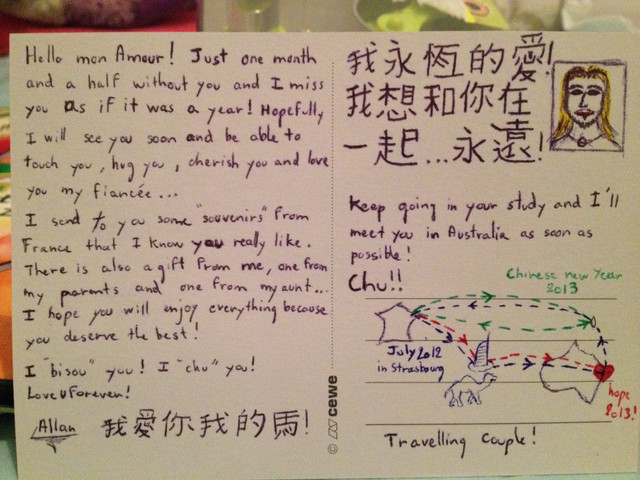 Hello mon Amour! Just one month
and a half without you and I miss
you as if it was a year! Hopefully
I will see you soon and be able to
touch you, hug you, cherish you and love
you my fiancée...
I send to you some "souvenirs" from
France that I know you really like.
There is also a gift from me, one from
my parents and one from my aunt...
I hope you will enjoy everything because
you deserve the best!
I "bisou" you! I "chu" you!
Love U Forever!
Allan
我愛你我的馬!
我永恆的愛!
我想和你在
一起...永遠!
Keep going in your study and I'll
meet you in Australia as soon as
possible!
Chu!!
Chinese new Year
2013
July 2012
in Strasbourg
hope
2013!
Travelling Couple!
© cewe